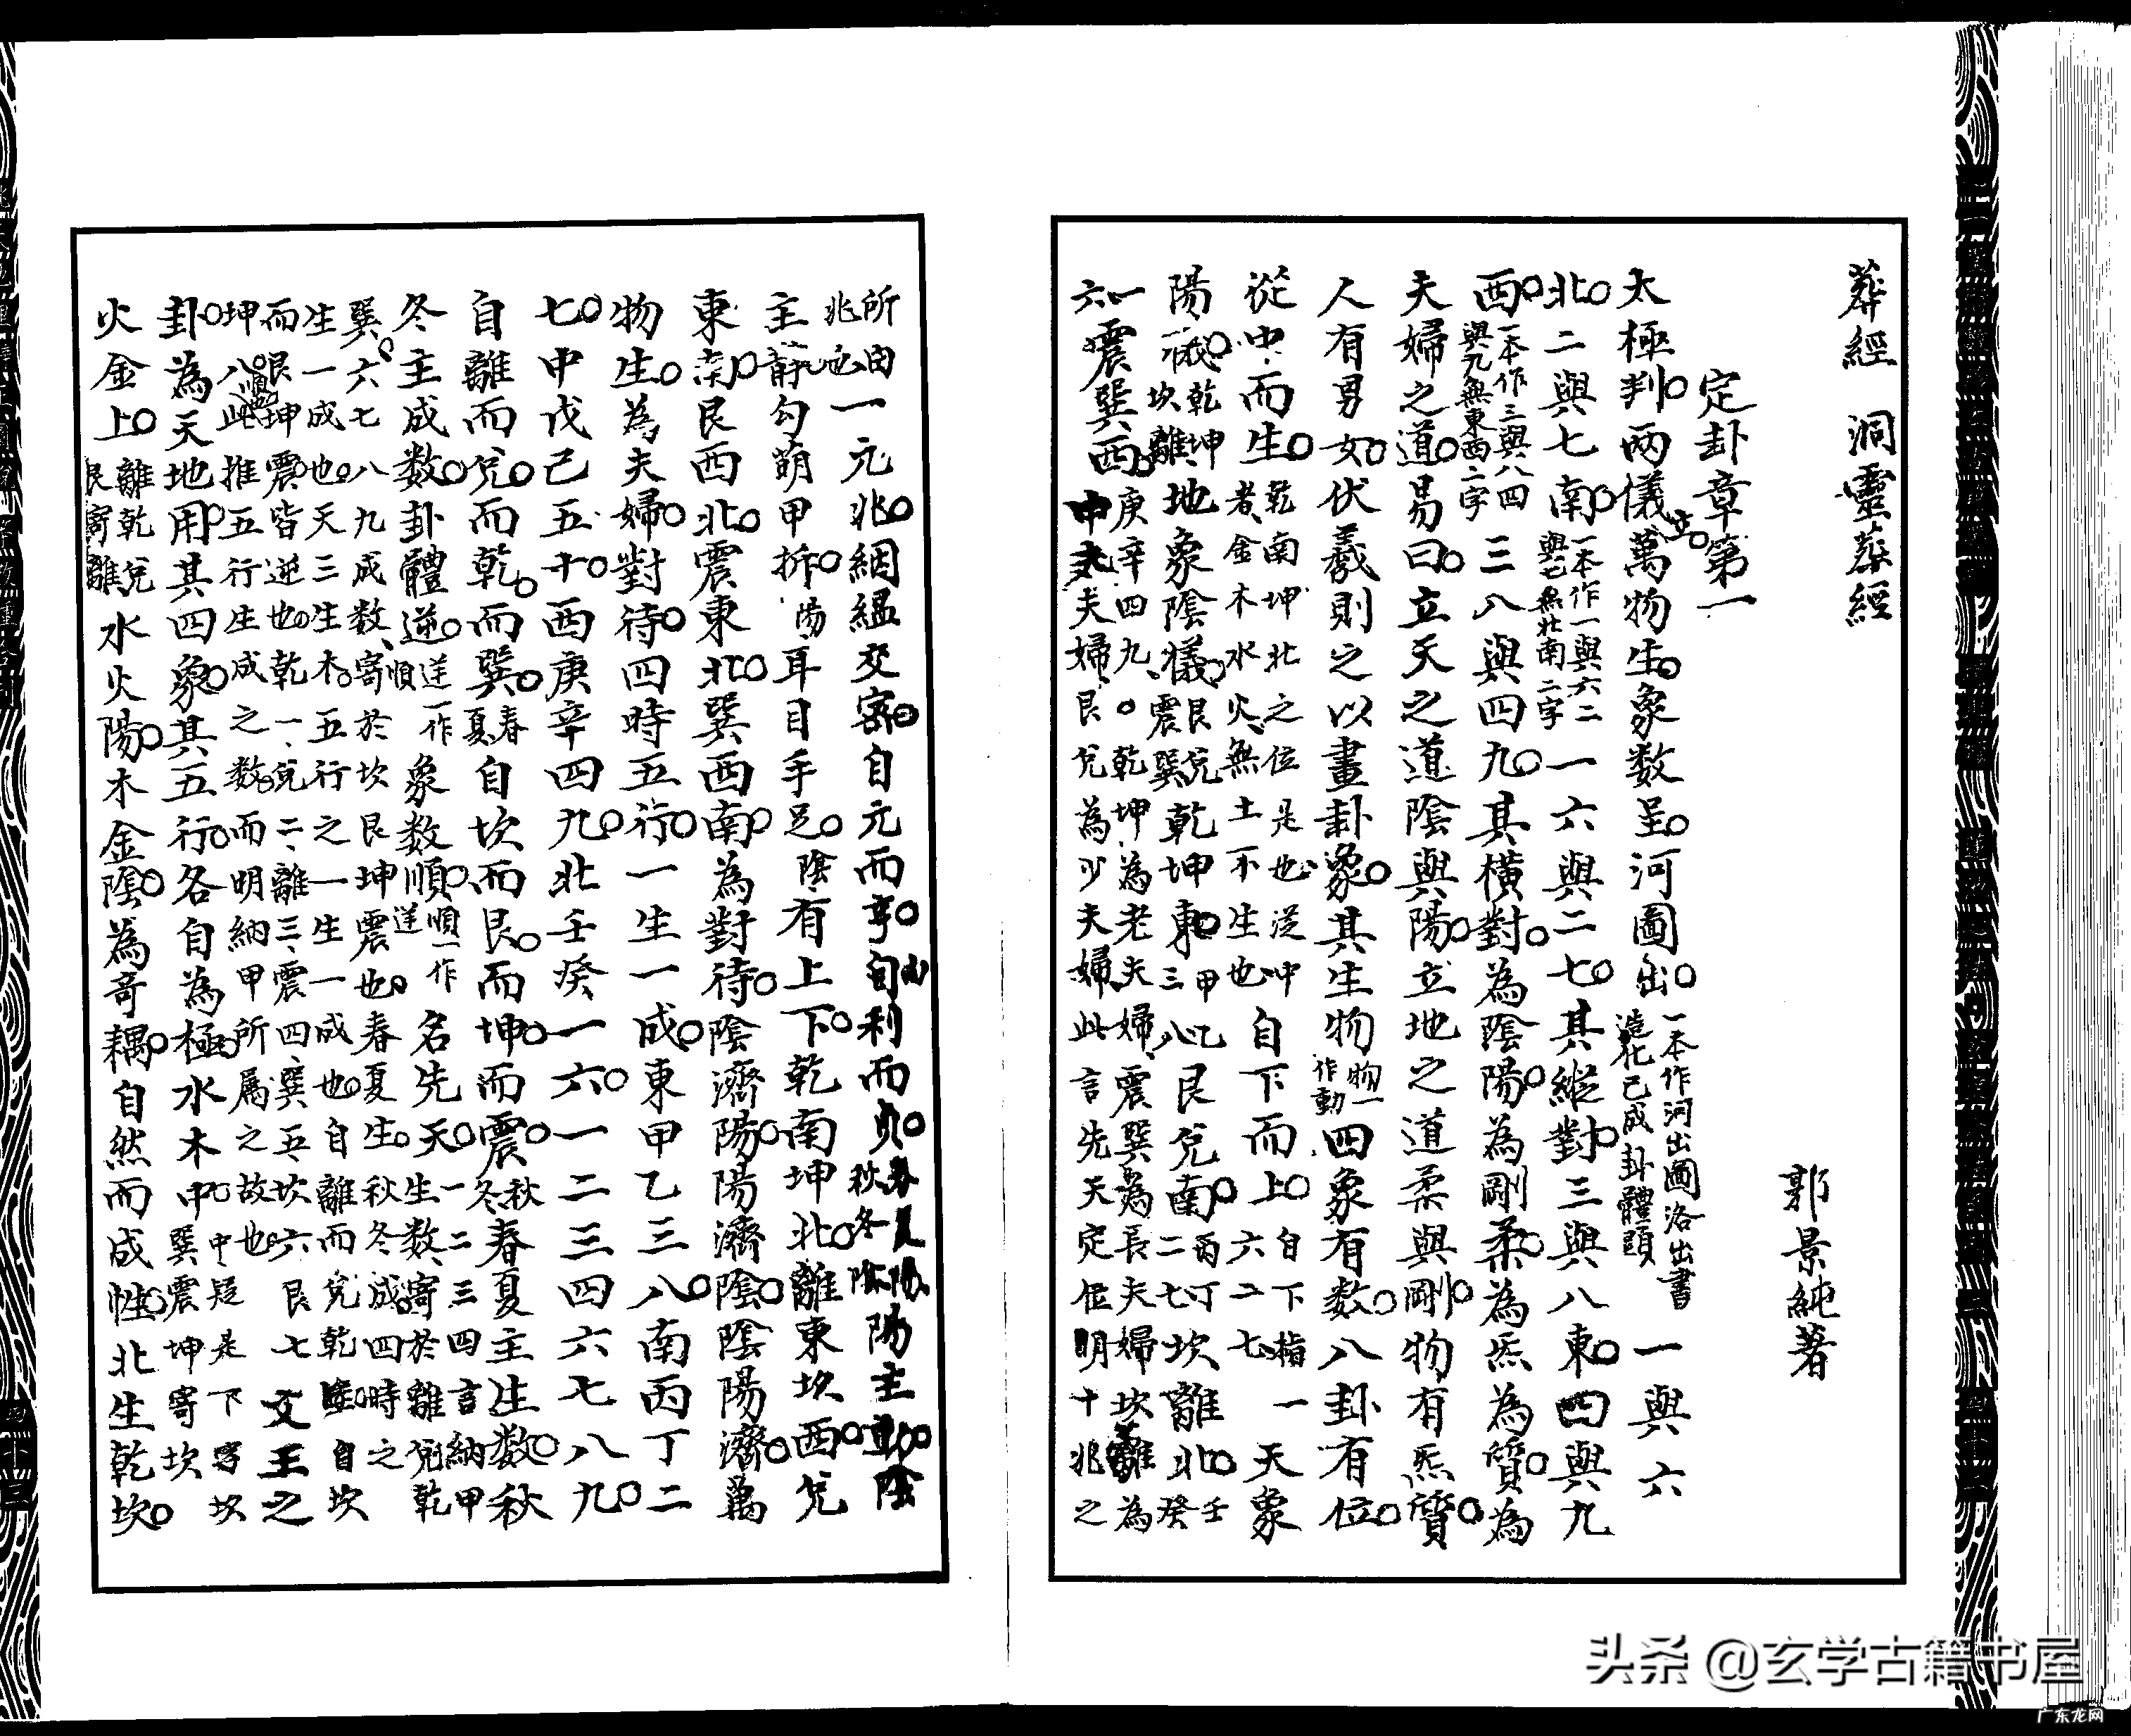 葬經　洞靈葬經
郭景純著
定卦章第一
太極判兩儀立萬物生象数呈河圖出一本作河出圖洛出書造化已成卦體顕一與六
北二與七南一本作一與六二與七無北南二字一六與二七其縱對三與八東四與九
西一本作三與八四與九無東西二字三八與四九其橫對為陰陽為剛柔為炁為質為
夫婦之道易曰立天之道陰與陽立地之道柔與剛物有炁質
人有男女伏羲則之以畫卦象其生物物一作動四象有数八卦有位
從中而生乾南坤北之位是也從中者金木水火無土不生也自下而上自下指一六二七一天象
陽儀乾坤坎離地象陰儀艮兌震巽乾坤東甲乙三八艮兌南丙丁二七坎離北壬癸
一六震巽西庚辛四九。乾坤為老夫婦震巽為長夫婦坎離為中夫婦艮兌為少夫婦此言先天定位明十兆之
所由兆也一元兆絪縕交宻自元而亨利而貞春夏陽秋冬陰陽主動陰
主靜勾萌甲拆陽耳目手足陰有上下乾南坤北離東坎西兌
東南艮西北震東北巽西南為對待陰濟陽陽濟陰陰陽濟萬
物生為夫婦對待四時五行一生一成東甲乙三八南丙丁二
七中戊己五十西庚辛四九北壬癸一六一二三四六七八九
自離而兌而乾而巽春夏自坎而艮而坤而震秋冬春夏主生数秋
冬主成数卦體逆逆一作順象数順順一作逆名先天生数一二三四言納甲寄於離兌乾
巽六七八九成数寄於坎艮坤震也春夏生秋冬成四時之
生一成也天三生木五行之一生一成也自離而兌乾自坎
而艮坤震皆逆也乾一兌二離三震四巽五坎六艮七
坤八順也此推五行生成之数而明納甲所属之故也文王之
卦為天地用其四象其五行各自為極水木中中疑是下寄坎巽震坤寄坎
火金上離乾兌艮寄離水火陽木金陰為竒耦自然而成性北生乾坎
头条 @玄学古籍书屋
广东龙网